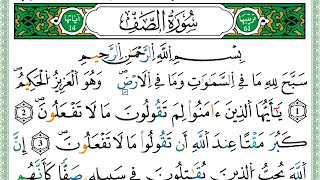 آياتها 14 سُورَةُ الصَّفِّ ترتيبها 61
بِسْمِ اللَّهِ الرَّحْمَٰنِ الرَّحِيمِ
سَبَّحَ لِلَّهِ مَا فِي السَّمَٰوَٰتِ وَمَا فِي الْأَرْضِ ۖ وَهُوَ الْعَزِيزُ الْحَكِيمُ
1 يَٰٓأَيُّهَا الَّذِينَ ءَامَنُوا لِمَ تَقُولُونَ مَا لَا تَفْعَلُونَ 2
كَبُرَ مَقْتًا عِندَ اللَّهِ أَن تَقُولُوا مَا لَا تَفْعَلُونَ 3 إِنَّ
اللَّهَ يُحِبُّ الَّذِينَ يُقَٰتِلُونَ فِي سَبِيلِهِ صَفًّا كَأَنَّهُم